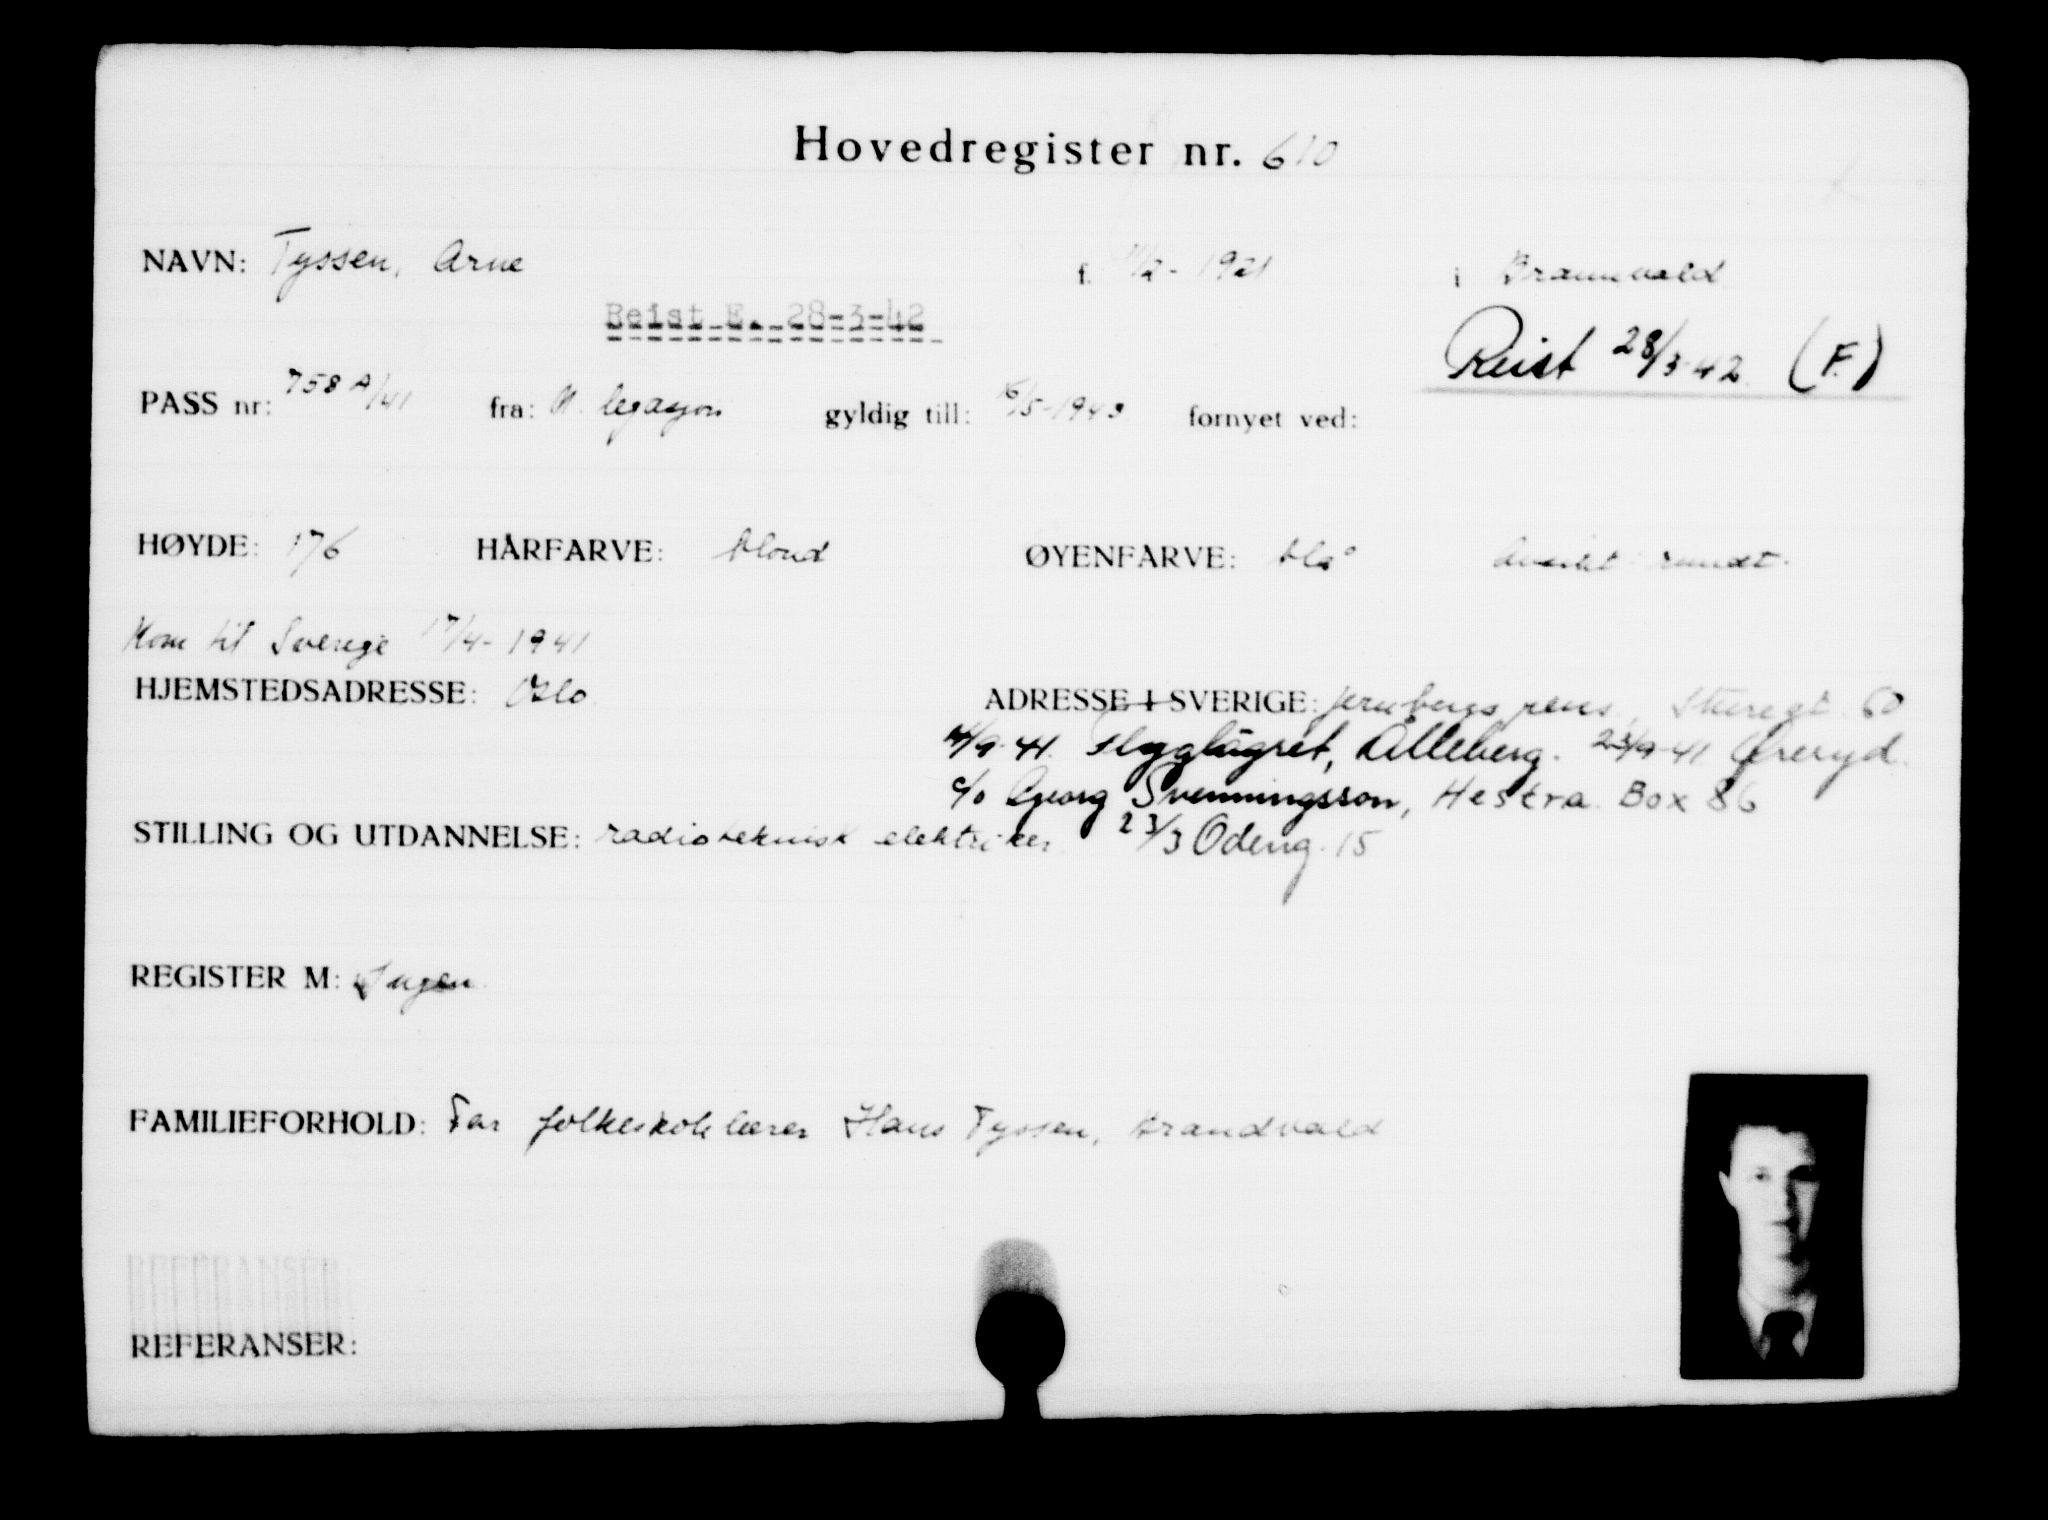 Hovedregister nr. 610
NAVN: Tyssen, Arne f. 11/2- 1921 i Brannvald
Reist E. 28-3-42
Reist 28/3-42 (F.)
PASS nr: 758 A/41 fra: N. legasjon gyldig till: 16/5-1943 fornyet ved:
HØYDE: 176 HÅRFARVE: blond ØYENFARVE: blå Ansikt: rundt.
Kom til Sverige 17/4- 1941
HJEMSTEDSADRESSE: Oslo ADRESSE I SVERIGE: Jernbergs pens., Sturegt. 60
/9-41. Flyglägret, Ålleberg. 23/9-41 Öreryd.
c/o Georg Svenningsson, Hestra. Box 86
STILLING OG UTDANNELSE: radioteknisk elektriker. 23/3 Odeng. 15
REGISTER M: Ingen.
FAMILIEFORHOLD: Far folkeskolelærer Hans Tyssen, Brandvald
REFERANSER: